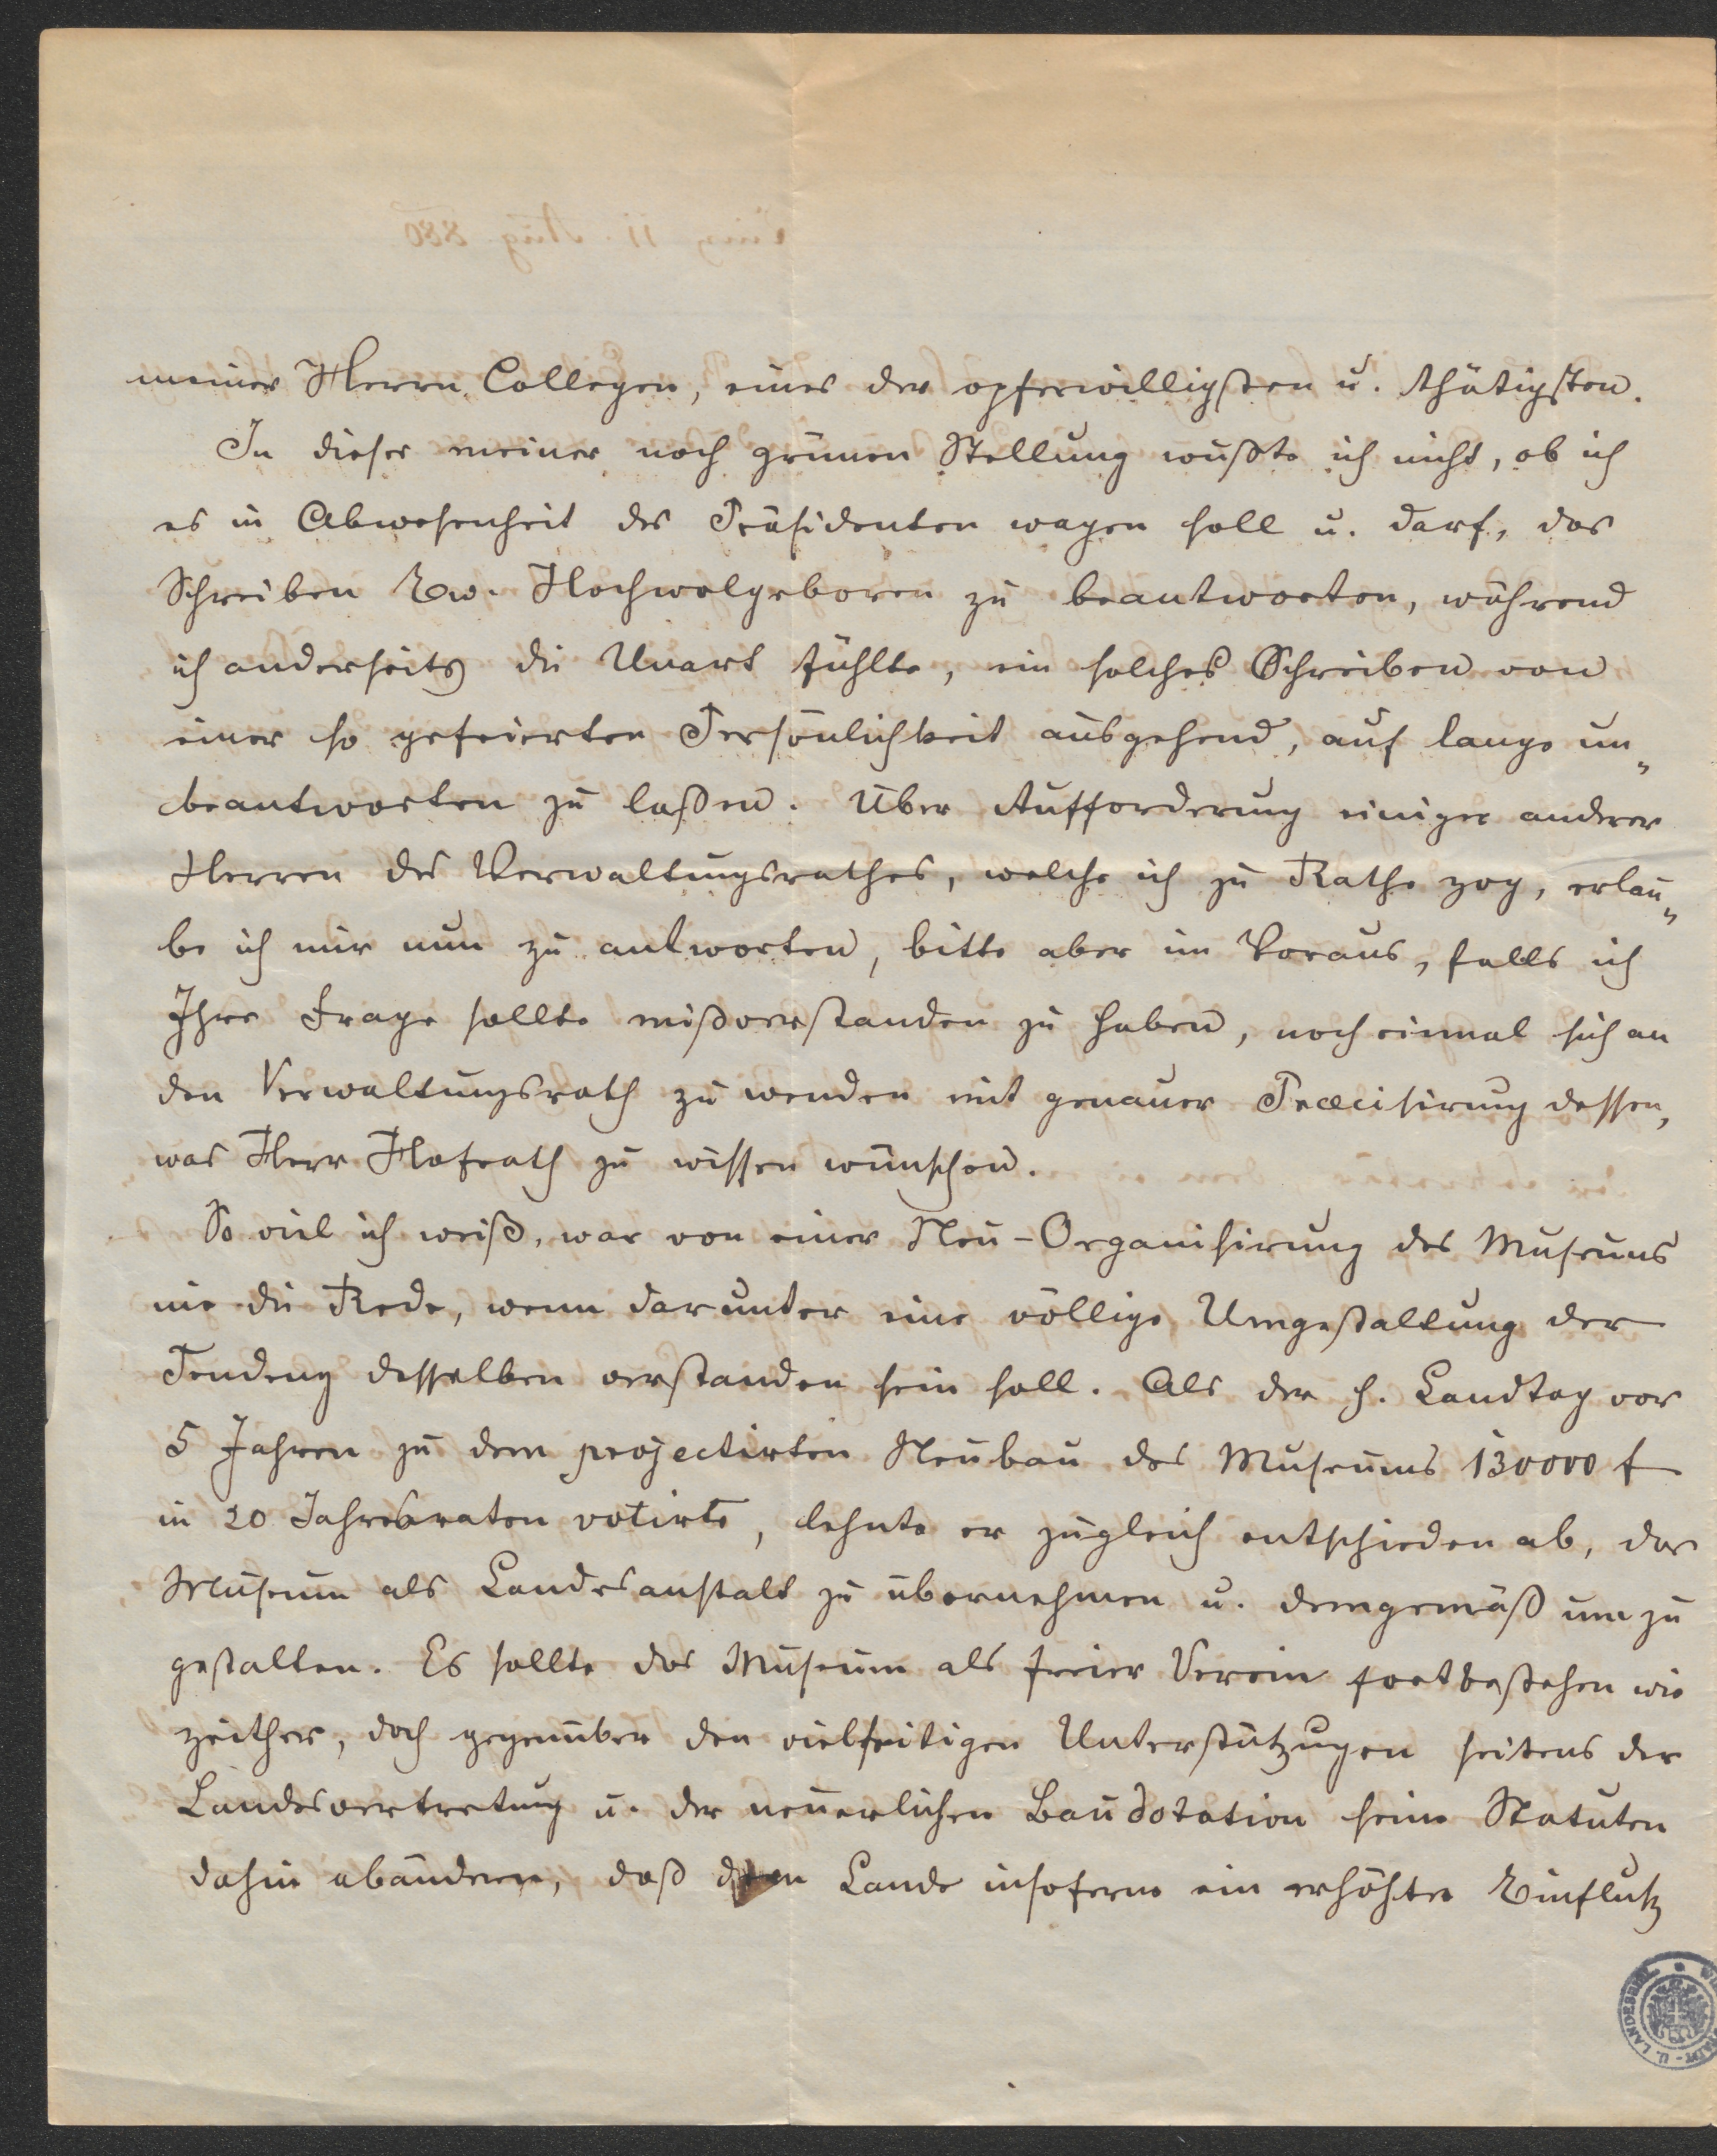 meiner Herrn Collegen, eines der opferwilligsten u. thätigsten.
In dieser meiner noch grünen Stellung wußte ich nicht, ob ich
es in Abwesenheit des Präsidenten wagen soll u. darf, das
Schreiben Ew. Hochwolgeboren zu beantworten, während
ich anderseits die Unart fühlte, ein solches Schreiben von
einer so gefeierten Persönlichkeit ausgehend, auf lange un„
beantworten zu laßen. Über Aufforderung einiger anderer
Herren des Verwaltungsrathes, welche ich zu Rathe zog, erlau„
be ich mir nun zu antworten, bitte aber im Voraus, falls ich
Ihre Frage sollte mißverstanden zu haben, noch einmal sich an
den Verwaltungsrath zu wenden mit genauer Præcisirung dessen,
was Herr Hofrath zu wissen wünschen.
So viel ich weiß, war von einer Neu-Organisirung des Museums
nie die Rede, wenn darunter eine völlige Umgestaltung der
Tendenz desselben verstanden sein soll. Als der h. Landtag vor
5 Jahren zu dem projectirten Neubau des Museums 130000 f
in 20 Jahresraten votirte, lehnte er zugleich entschieden ab, das
Museum als Landesanstalt zu übernehmen u. demgemäß um zu
gestalten. Es sollte das Museum als freier Verein fortbestehen wie
zeither, doch gegenüber den vielseitigen Unterstützugen seitens der
Landesvertretung u. der neuerlichen Baudotation seine Statuten
dahin abändern, daß dem Lande insoferne ein erhöhter Einfluß
LANDESBIBL.